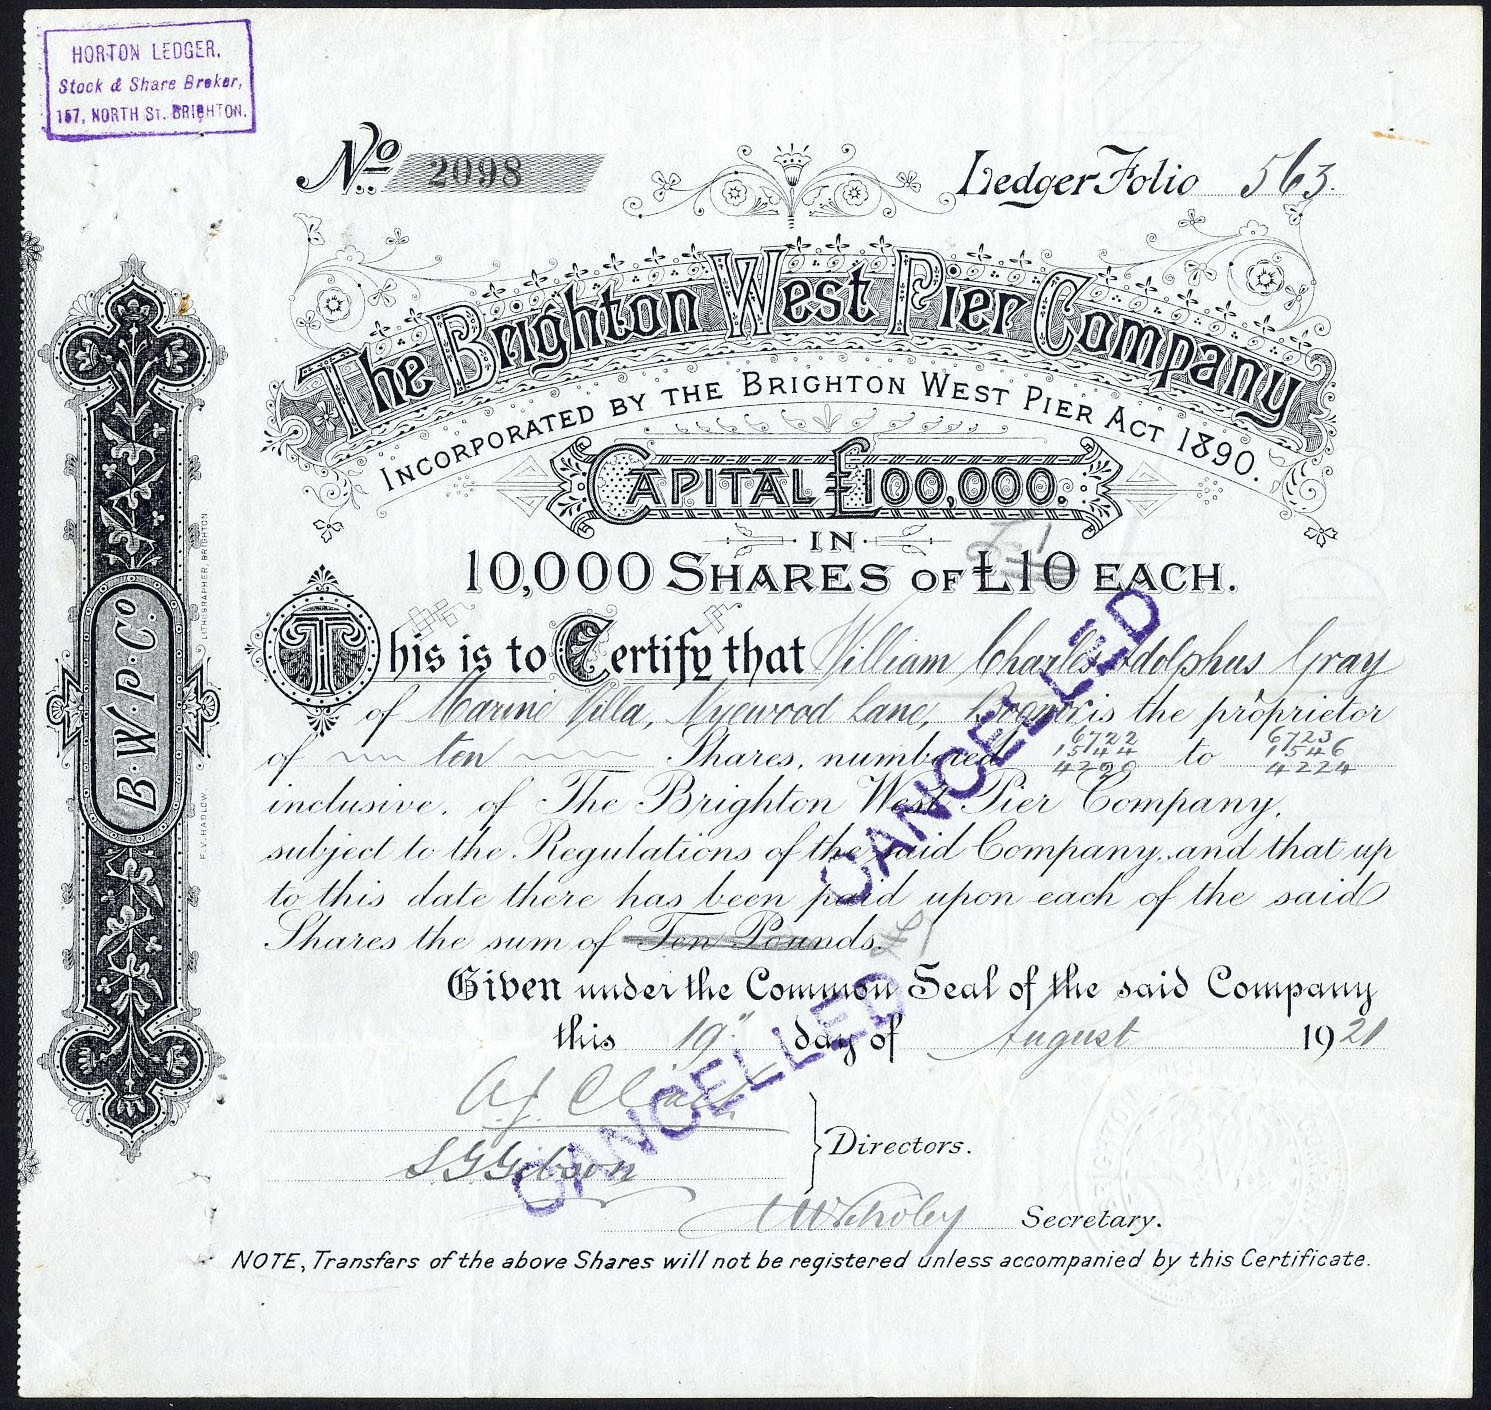 HORTON LEDGER,
Stock & Share Broker,
157, NORTH ST. BRIGHTON.
No 2098
Ledger Folio 563.
The Brighton West Pier Company
INCORPORATED BY THE BRIGHTON WEST PIER ACT 1890.
CAPITAL £100,000.
IN
10,000 SHARES OF £10 EACH.
This is to Certify that William Charles Adolphus Gray
of Marine Villa, Nyewood Lane, Bognor is the proprietor
of ten Shares, numbered 6722 1544 4220 to 6723 1546 4224
inclusive, of The Brighton West Pier Company,
subject to the Regulations of the said Company, and that up
to this date there has been paid upon each of the said
Shares the sum of Ten Pounds.
Given under the Common Seal of the said Company
this 19" day of August 1921
S G Gibson
Directors.
Secretary.
NOTE, Transfers of the above Shares will not be registered unless accompanied by this Certificate.
CANCELLED
CANCELLED
B.W.P.Co.
F.V. HADLOW, LITHOGRAPHER, BRIGHTON